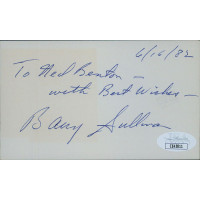 6/15/82
To Ned Benton —
with Best Wishes —
Barry Sullivan
JSA